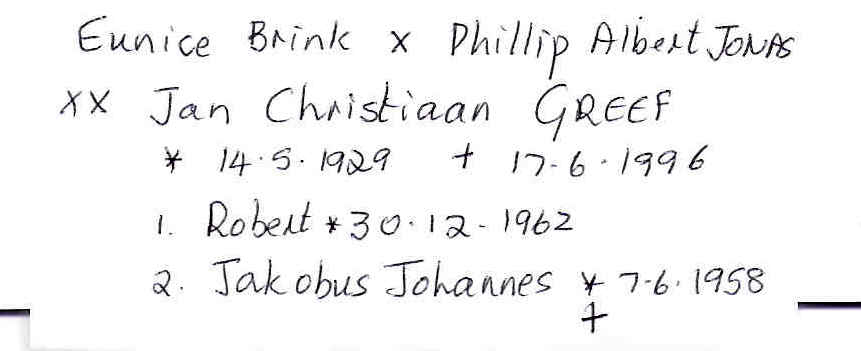 Eunice Brink x Phillip Albert JONAS
xx Jan Christiaan GREEF
* 14.5.1929 + 17-6.1996
1. Robert * 30.12-1962
2. Jakobus Johannes * 7-6.1958
+